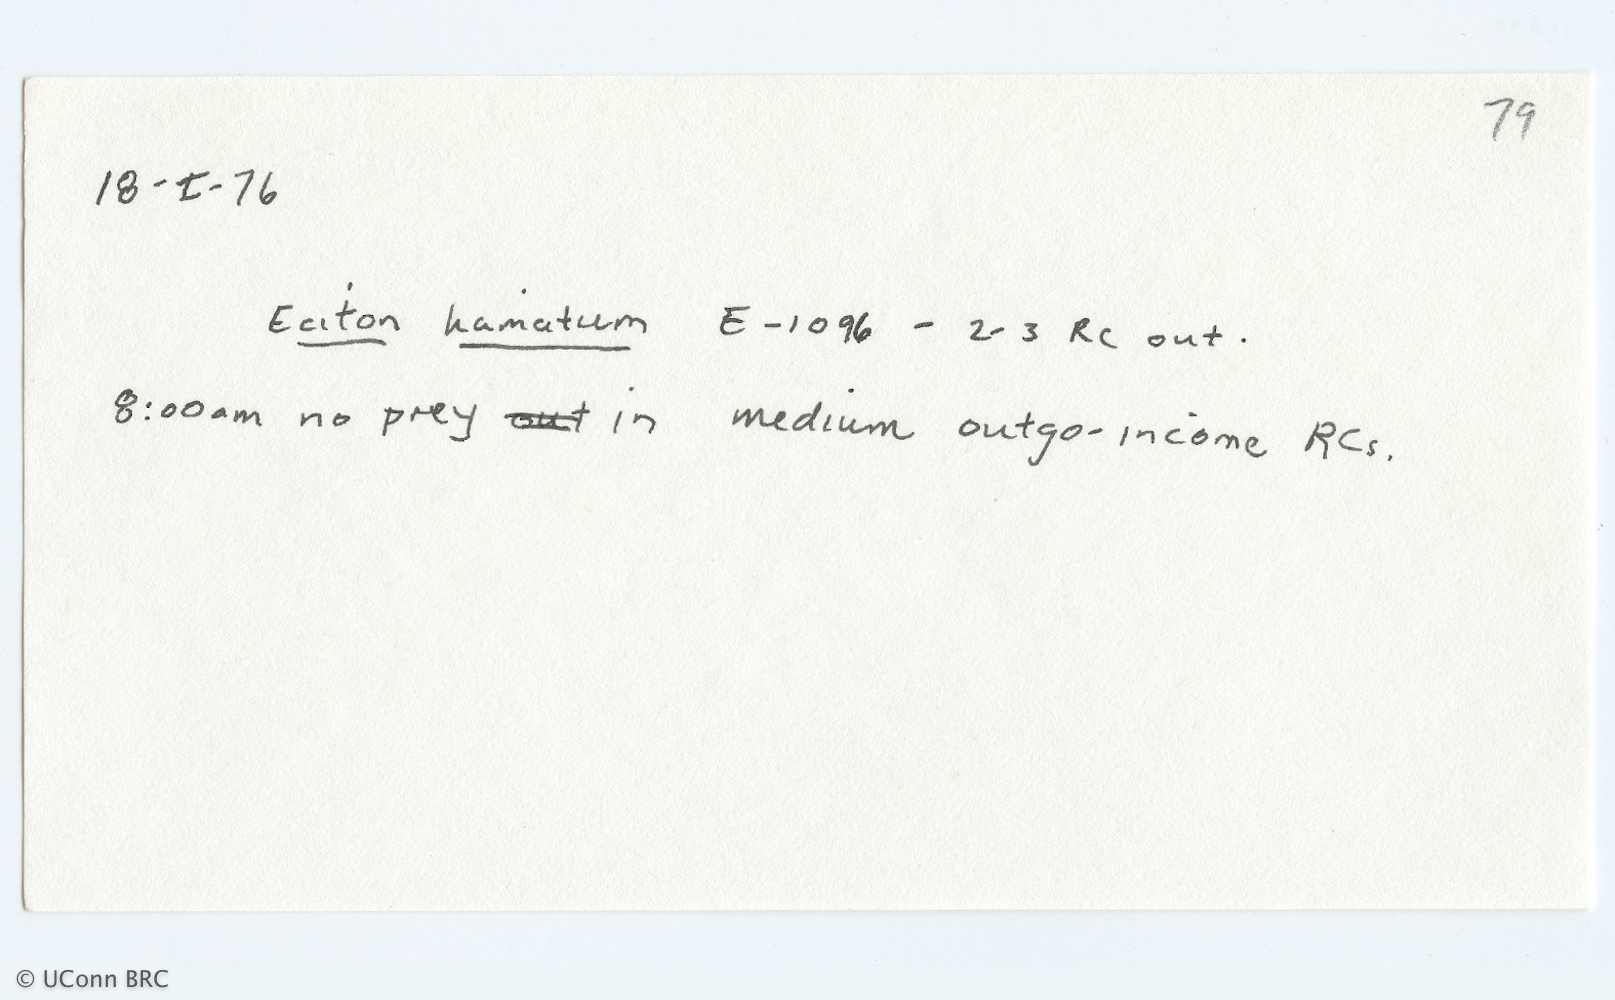 79
18-I-76
Eciton hamatum E-1096 - 2-3 RC out.
8:00am no prey out in medium outgo-income RCs.
© UConn BRC